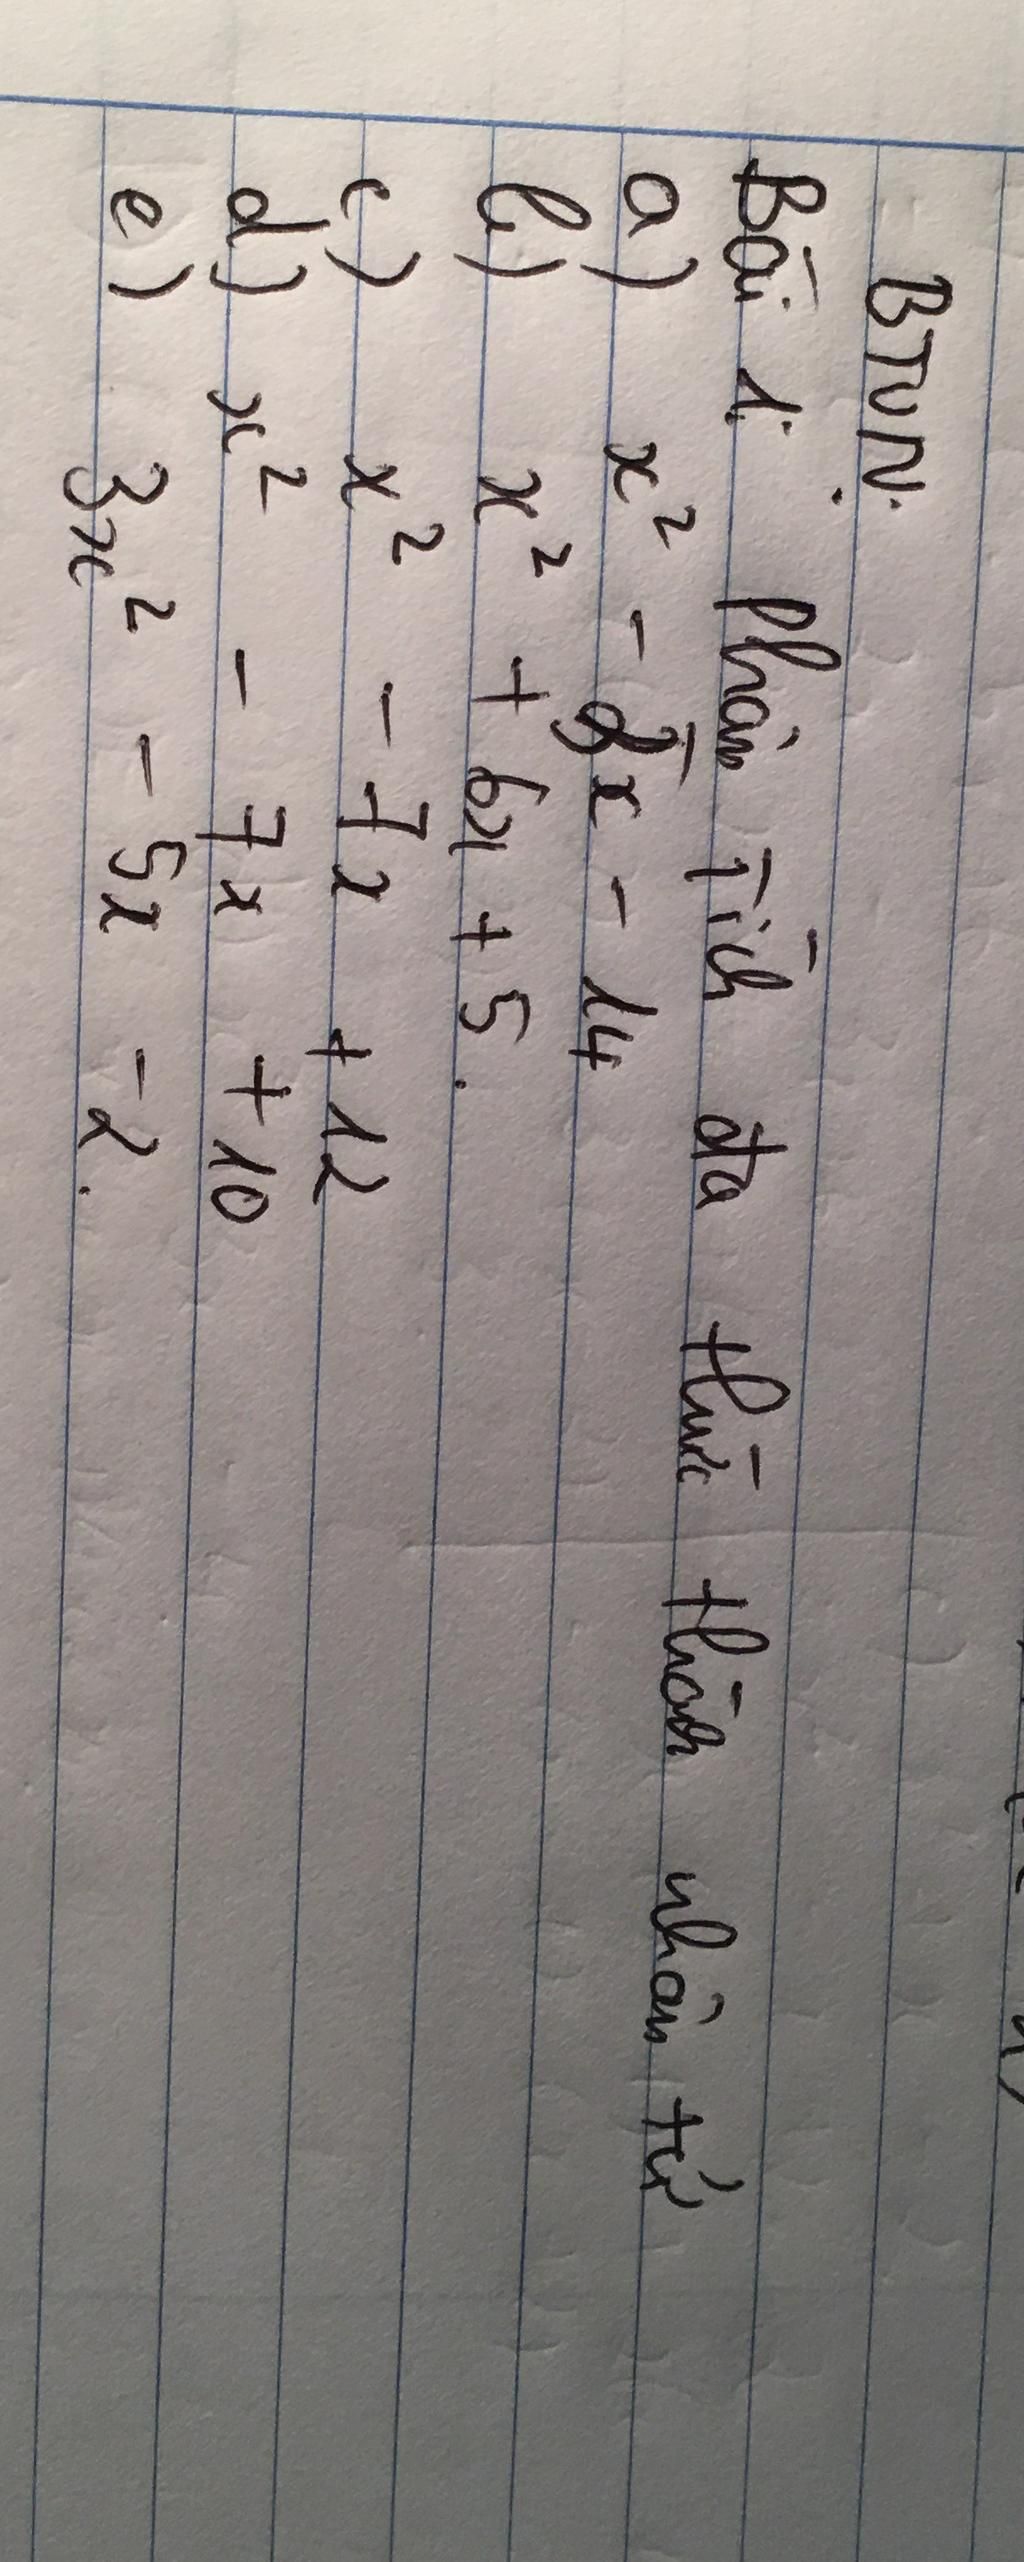 BTVN.
Bài 1: Phân Tích đa thức thành nhân tử
a) x² - x - 14
b) x² + 6x + 5.
c) x² - 7x + 12
d) x² - 7x + 10
e) 3x² - 5x - 2.